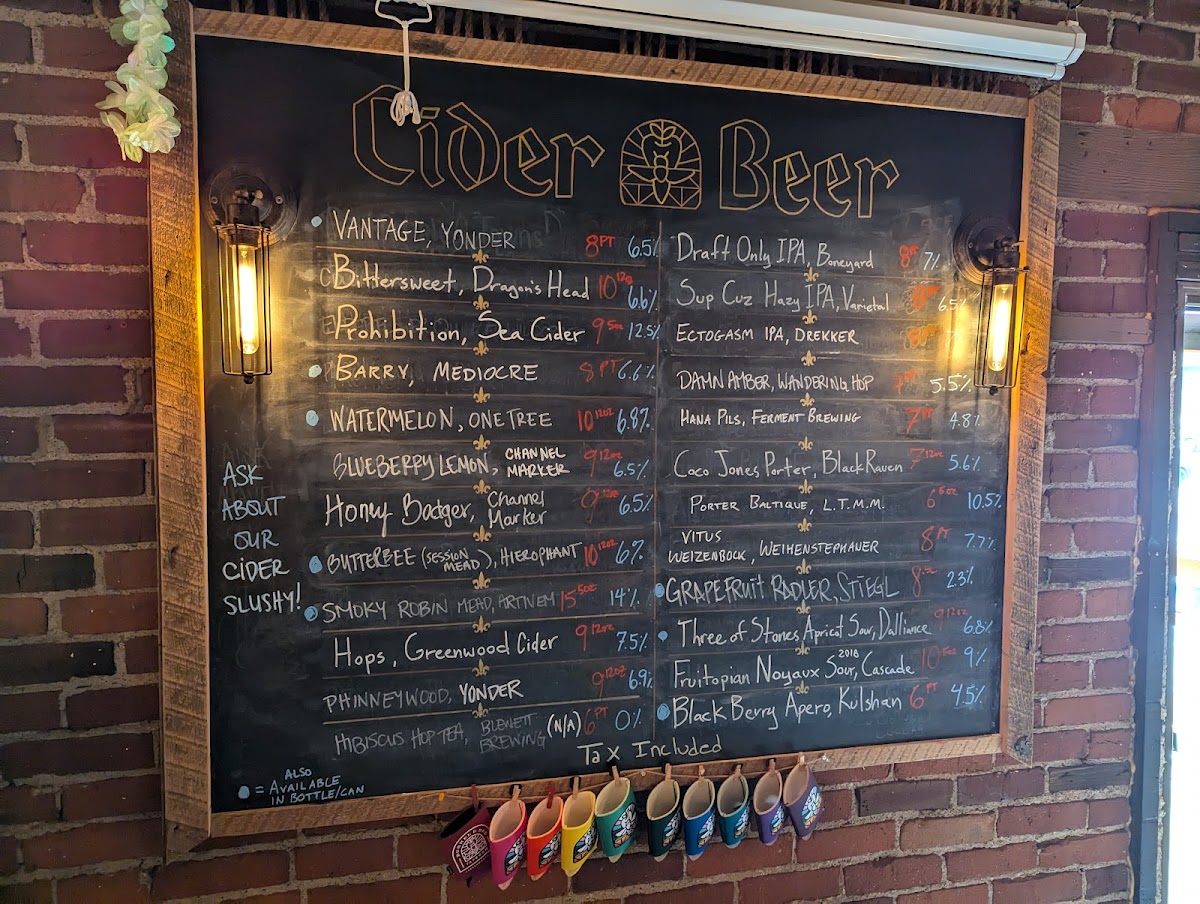 Cider Beer
VANTAGE, YONDER 8PT 6.5%
Bittersweet, Dragon's Head 10 12oz 6.6%
Prohibition, Sea Cider 9 5oz 12.5%
BARRY, MEDIOCRE 8PT 6.6%
WATERMELON, ONE TREE 10 12oz 6.8%
BLUEBERRY LEMON, CHANNEL MARKER 9 12oz 6.5%
Honey Badger, Channel Marker 9 12oz 6.5%
BUTTERBEE (SESSION MEAD), HIEROPHANT 10 12oz 6%
SMOKY ROBIN MEAD, ARTIVEM 15 5oz 14%
Hops, Greenwood Cider 9 12oz 7.5%
PHINNEYWOOD, YONDER 9 12oz 6.9%
HIBISCUS HOP TEA, BLEWETT BREWING (N/A) 6PT 0%
Draft Only IPA, Boneyard 8PT 7%
Sup Cuz Hazy IPA, Varietal 6.5%
ECTOGASM IPA, DREKKER
DAMN AMBER, WANDERING HOP 7PT 5.5%
HANA PILS, FERMENT BREWING 7PT 4.8%
Coco Jones Porter, Black Raven 7 12oz 5.6%
PORTER BALTIQUE, L.T.M.M. 6 5oz 10.5%
VITUS
WEIZENBOCK, WEIHENSTEPHANER 8PT 7.7%
GRAPEFRUIT RADLER, STIEGL 8 2.3%
Three of Stones Apricot Sour, Dalliance 9 12oz 6.8%
Fruitopian Noyaux Sour, 2018 Cascade 10 5oz 9%
Black Berry Apero, Kulshan 6PT 4.5%
Tax Included
ASK
ABOUT
OUR
CIDER
SLUSHY!
= ALSO
AVAILABLE
IN BOTTLE/CAN